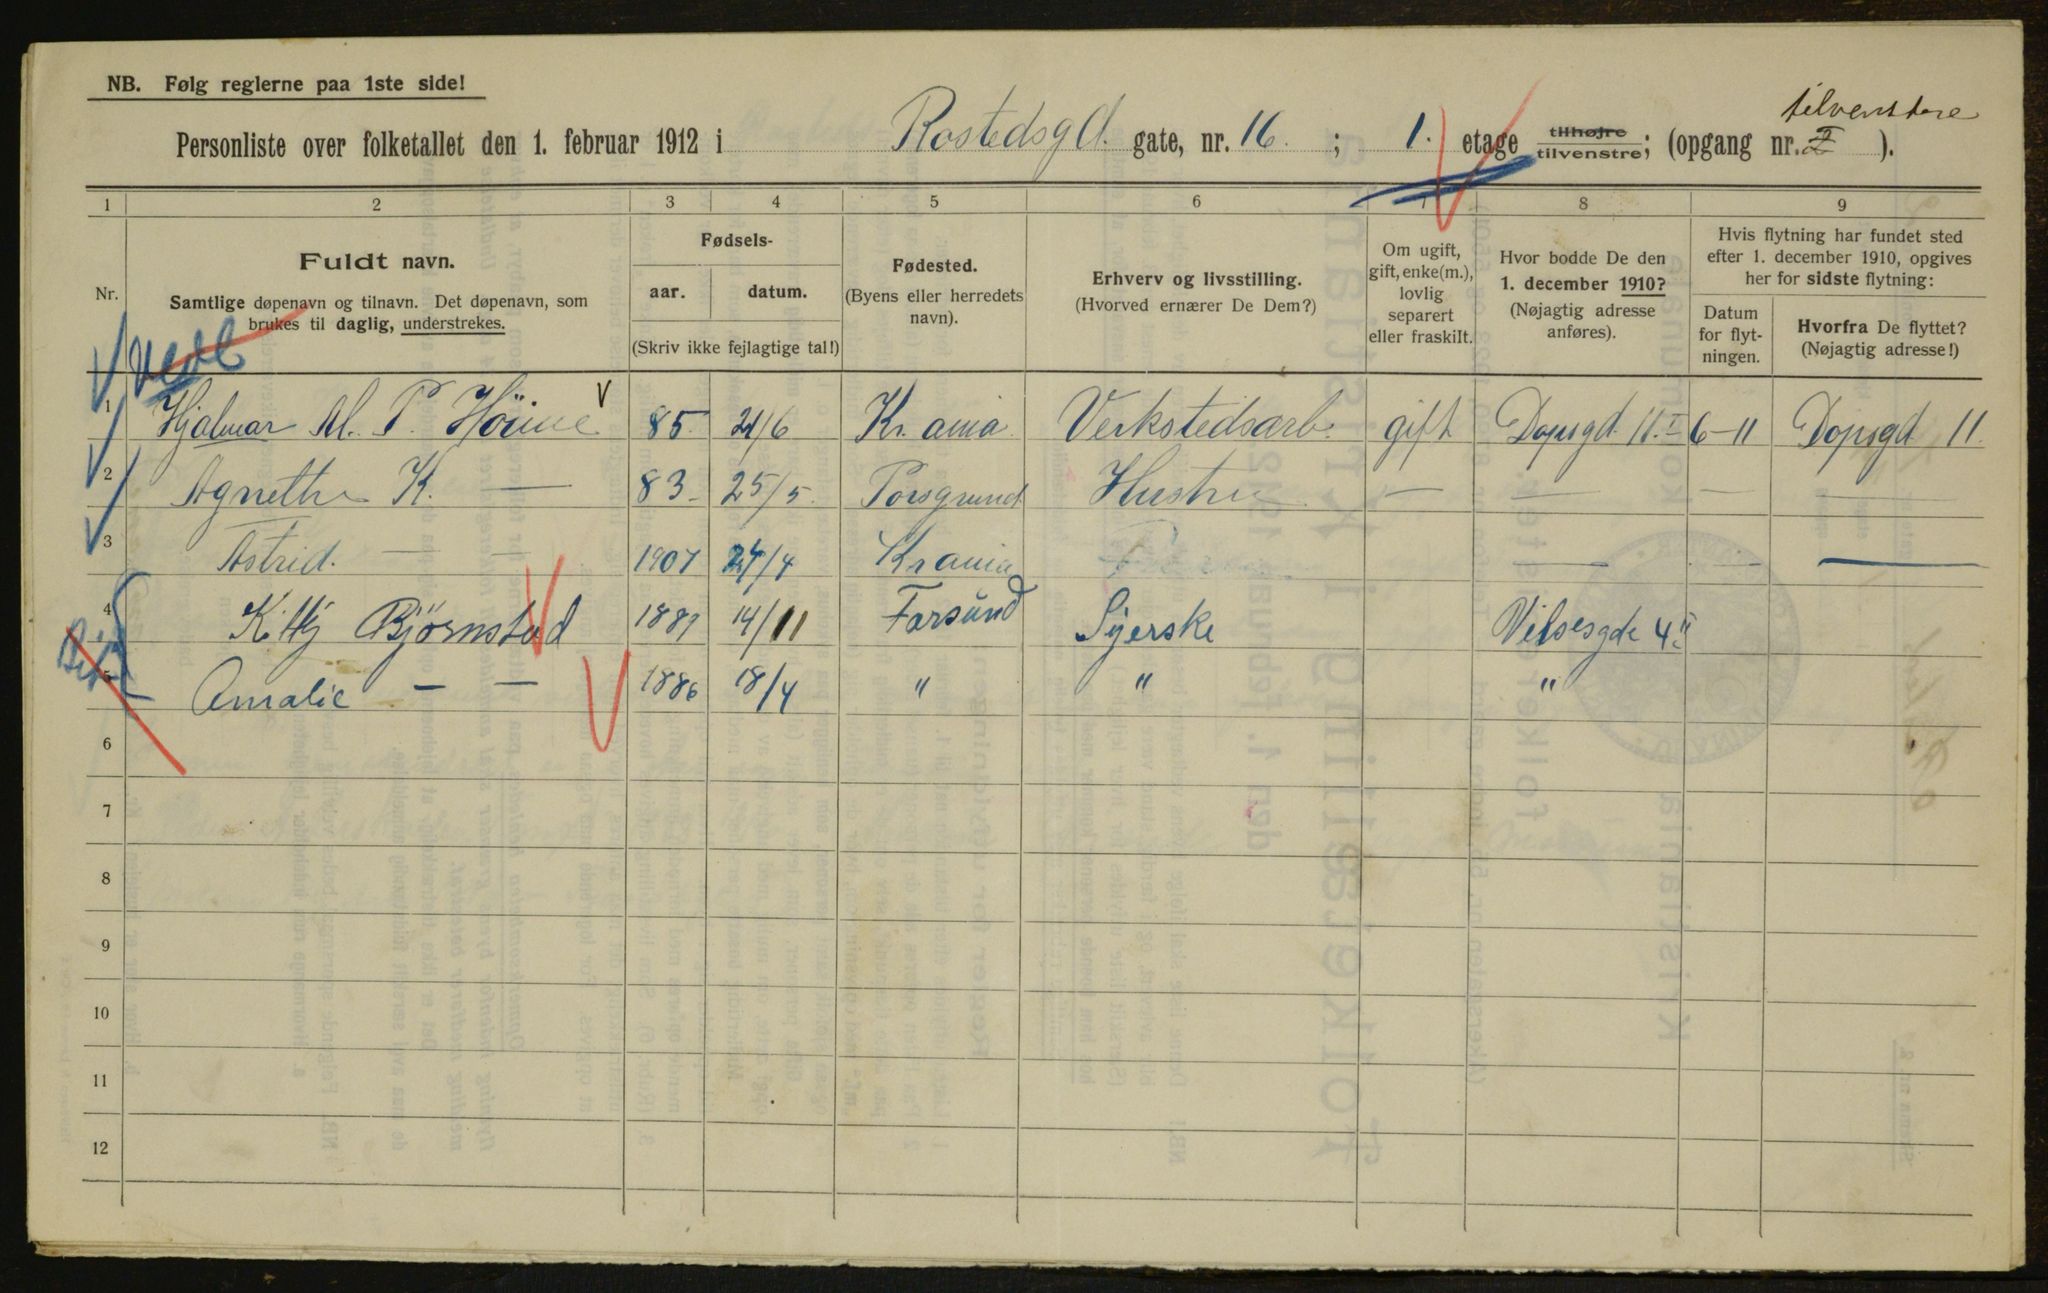 NB. Følg reglerne paa 1ste side!
tilvenstre
Personliste over folketallet den 1. februar 1912 i Rostedsgd. gate, nr. 16. ; 1. etage tilhøjre tilvenstre; (opgang nr. ).
1 2 3 4 5 6 7 8 9
Nr.
Fuldt navn.
Samtlige døpenavn og tilnavn. Det døpenavn, som
brukes til daglig, understrekes.
Fødsels-
aar. datum.
(Skriv ikke fejlagtige tal!)
Fødested.
(Byens eller herredets
navn).
Erhverv og livsstilling.
(Hvorved ernærer De Dem?)
Om ugift,
gift, enke(m.),
lovlig
separert
eller fraskilt.
Hvor bodde De den
1. december 1910?
(Nøjagtig adresse
anføres).
Hvis flytning har fundet sted
efter 1. december 1910, opgives
her for sidste flytning:
Datum
for flyt-
ningen.
Hvorfra De flyttet?
(Nøjagtig adresse!)
1 Hjalmar Al. P. 85 21/6 Kr.ania Verkstedsarb. gift Dopsgd. 11. I 6-11 Dopsgd 11.
2 Agnethe K. — 83 25/5 Porsgrund Hustru — — — —
3 Astrid. — — 1907 /4 Krania — — —
4 Kitty Bjørnstad 188 14/11 Farsund Syerske Vibesgde 4 II
5 Amalie — — 1886 18/4 " " "
6
7
8
9
10
11
12